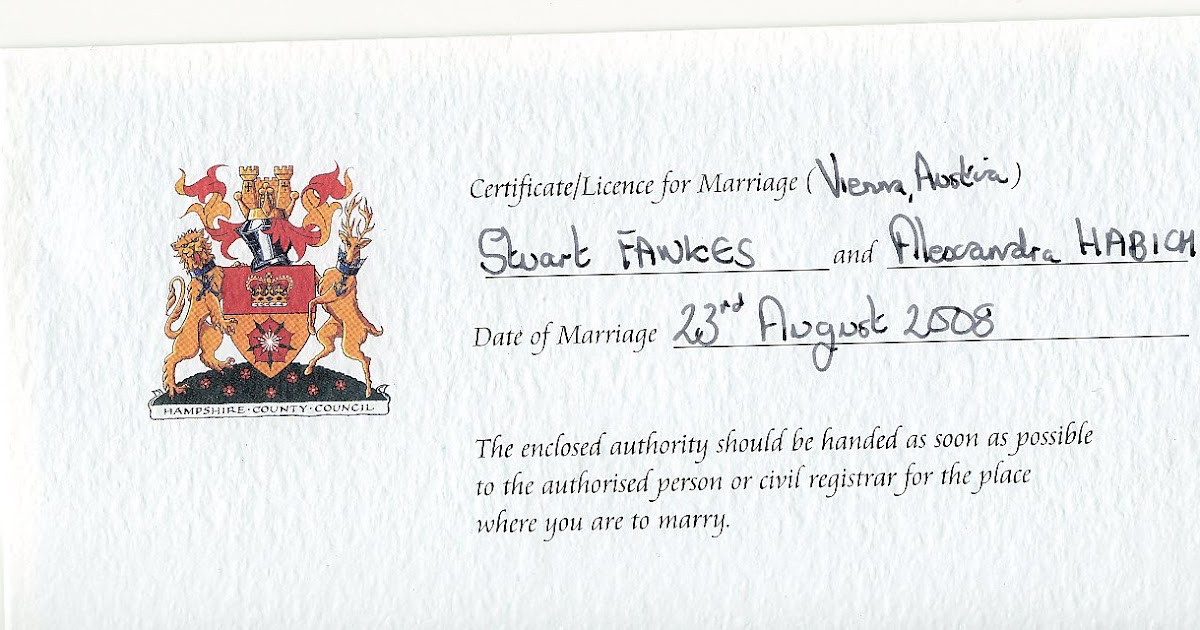 HAMPSHIRE·COUNTY·COUNCIL
Certificate/Licence for Marriage (Vienna, Austria)
Stuart FAWKES and Alexandra HABICH
Date of Marriage 23rd August 2008
The enclosed authority should be handed as soon as possible
to the authorised person or civil registrar for the place
where you are to marry.